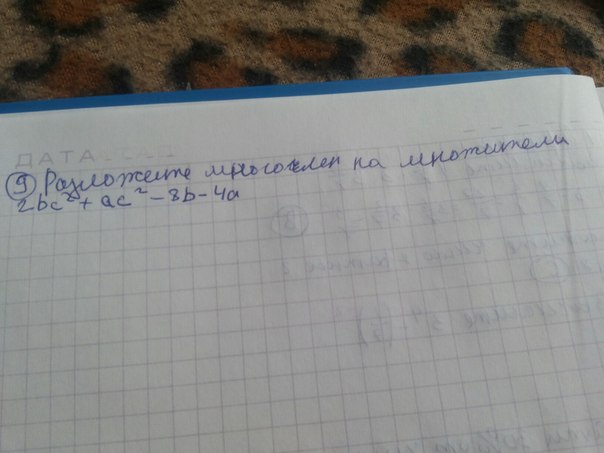 ДАТА
9) Разложите многочлен на множители
2bc² + ac² - 8b - 4a